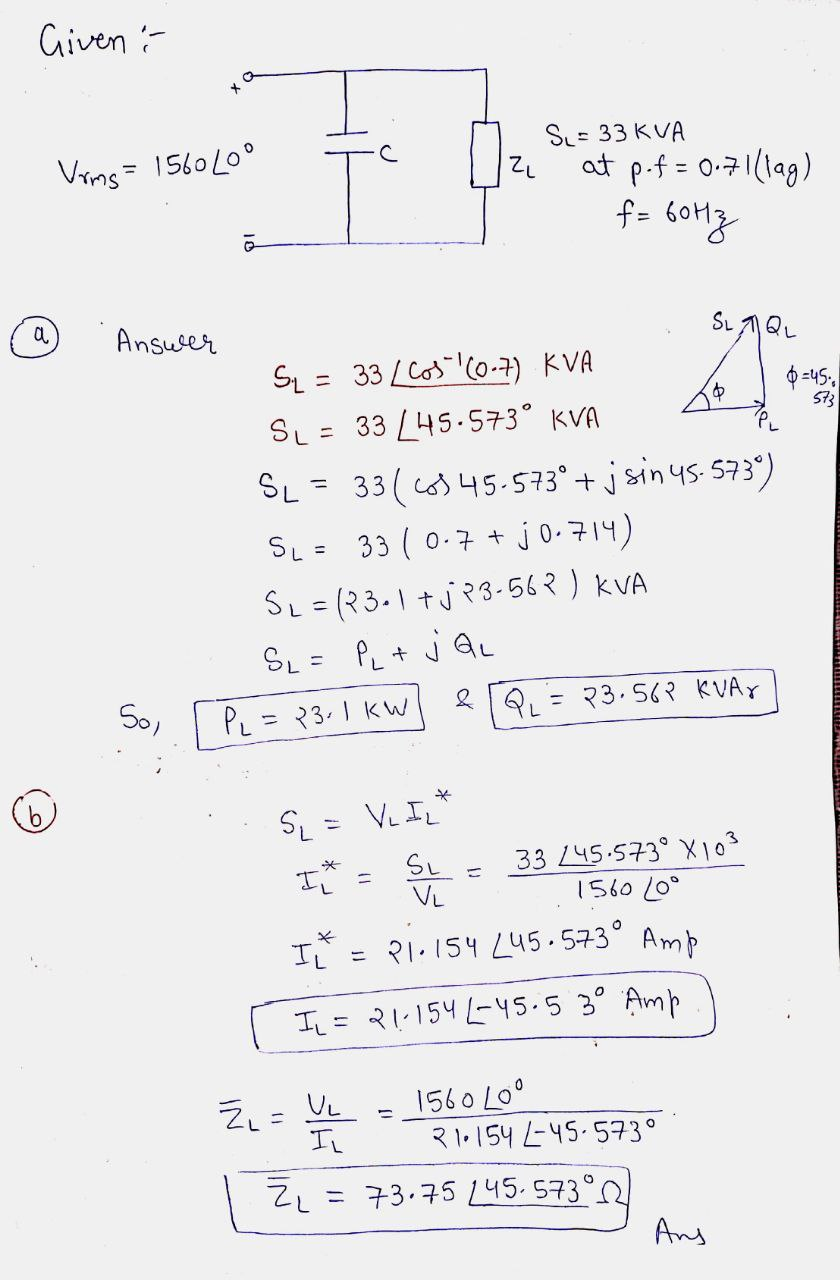 Given :-
+
Vrms = 1560∠0°
C
ZL
SL = 33 KVA
at p.f = 0.71(lag)
f = 60Hz
-
(a) Answer
SL QL
φ = 45.573
φ
PL
SL = 33∠cos⁻¹(0.7) KVA
SL = 33∠45.573° KVA
SL = 33(cos 45.573° + j sin 45.573°)
SL = 33(0.7 + j0.714)
SL = (23.1 + j23.562) KVA
SL = PL + j QL
So, PL = 23.1 KW & QL = 23.562 KVAr
(b)
SL = VL IL*
IL* = SL/VL = 33∠45.573° X10³/1560∠0°
IL* = 21.154∠45.573° Amp
IL = 21.154∠-45.5 3° Amp
Z̄L = VL/IL = 1560∠0°/21.154∠-45.573°
Z̄L = 73.75∠45.573°Ω
Ans